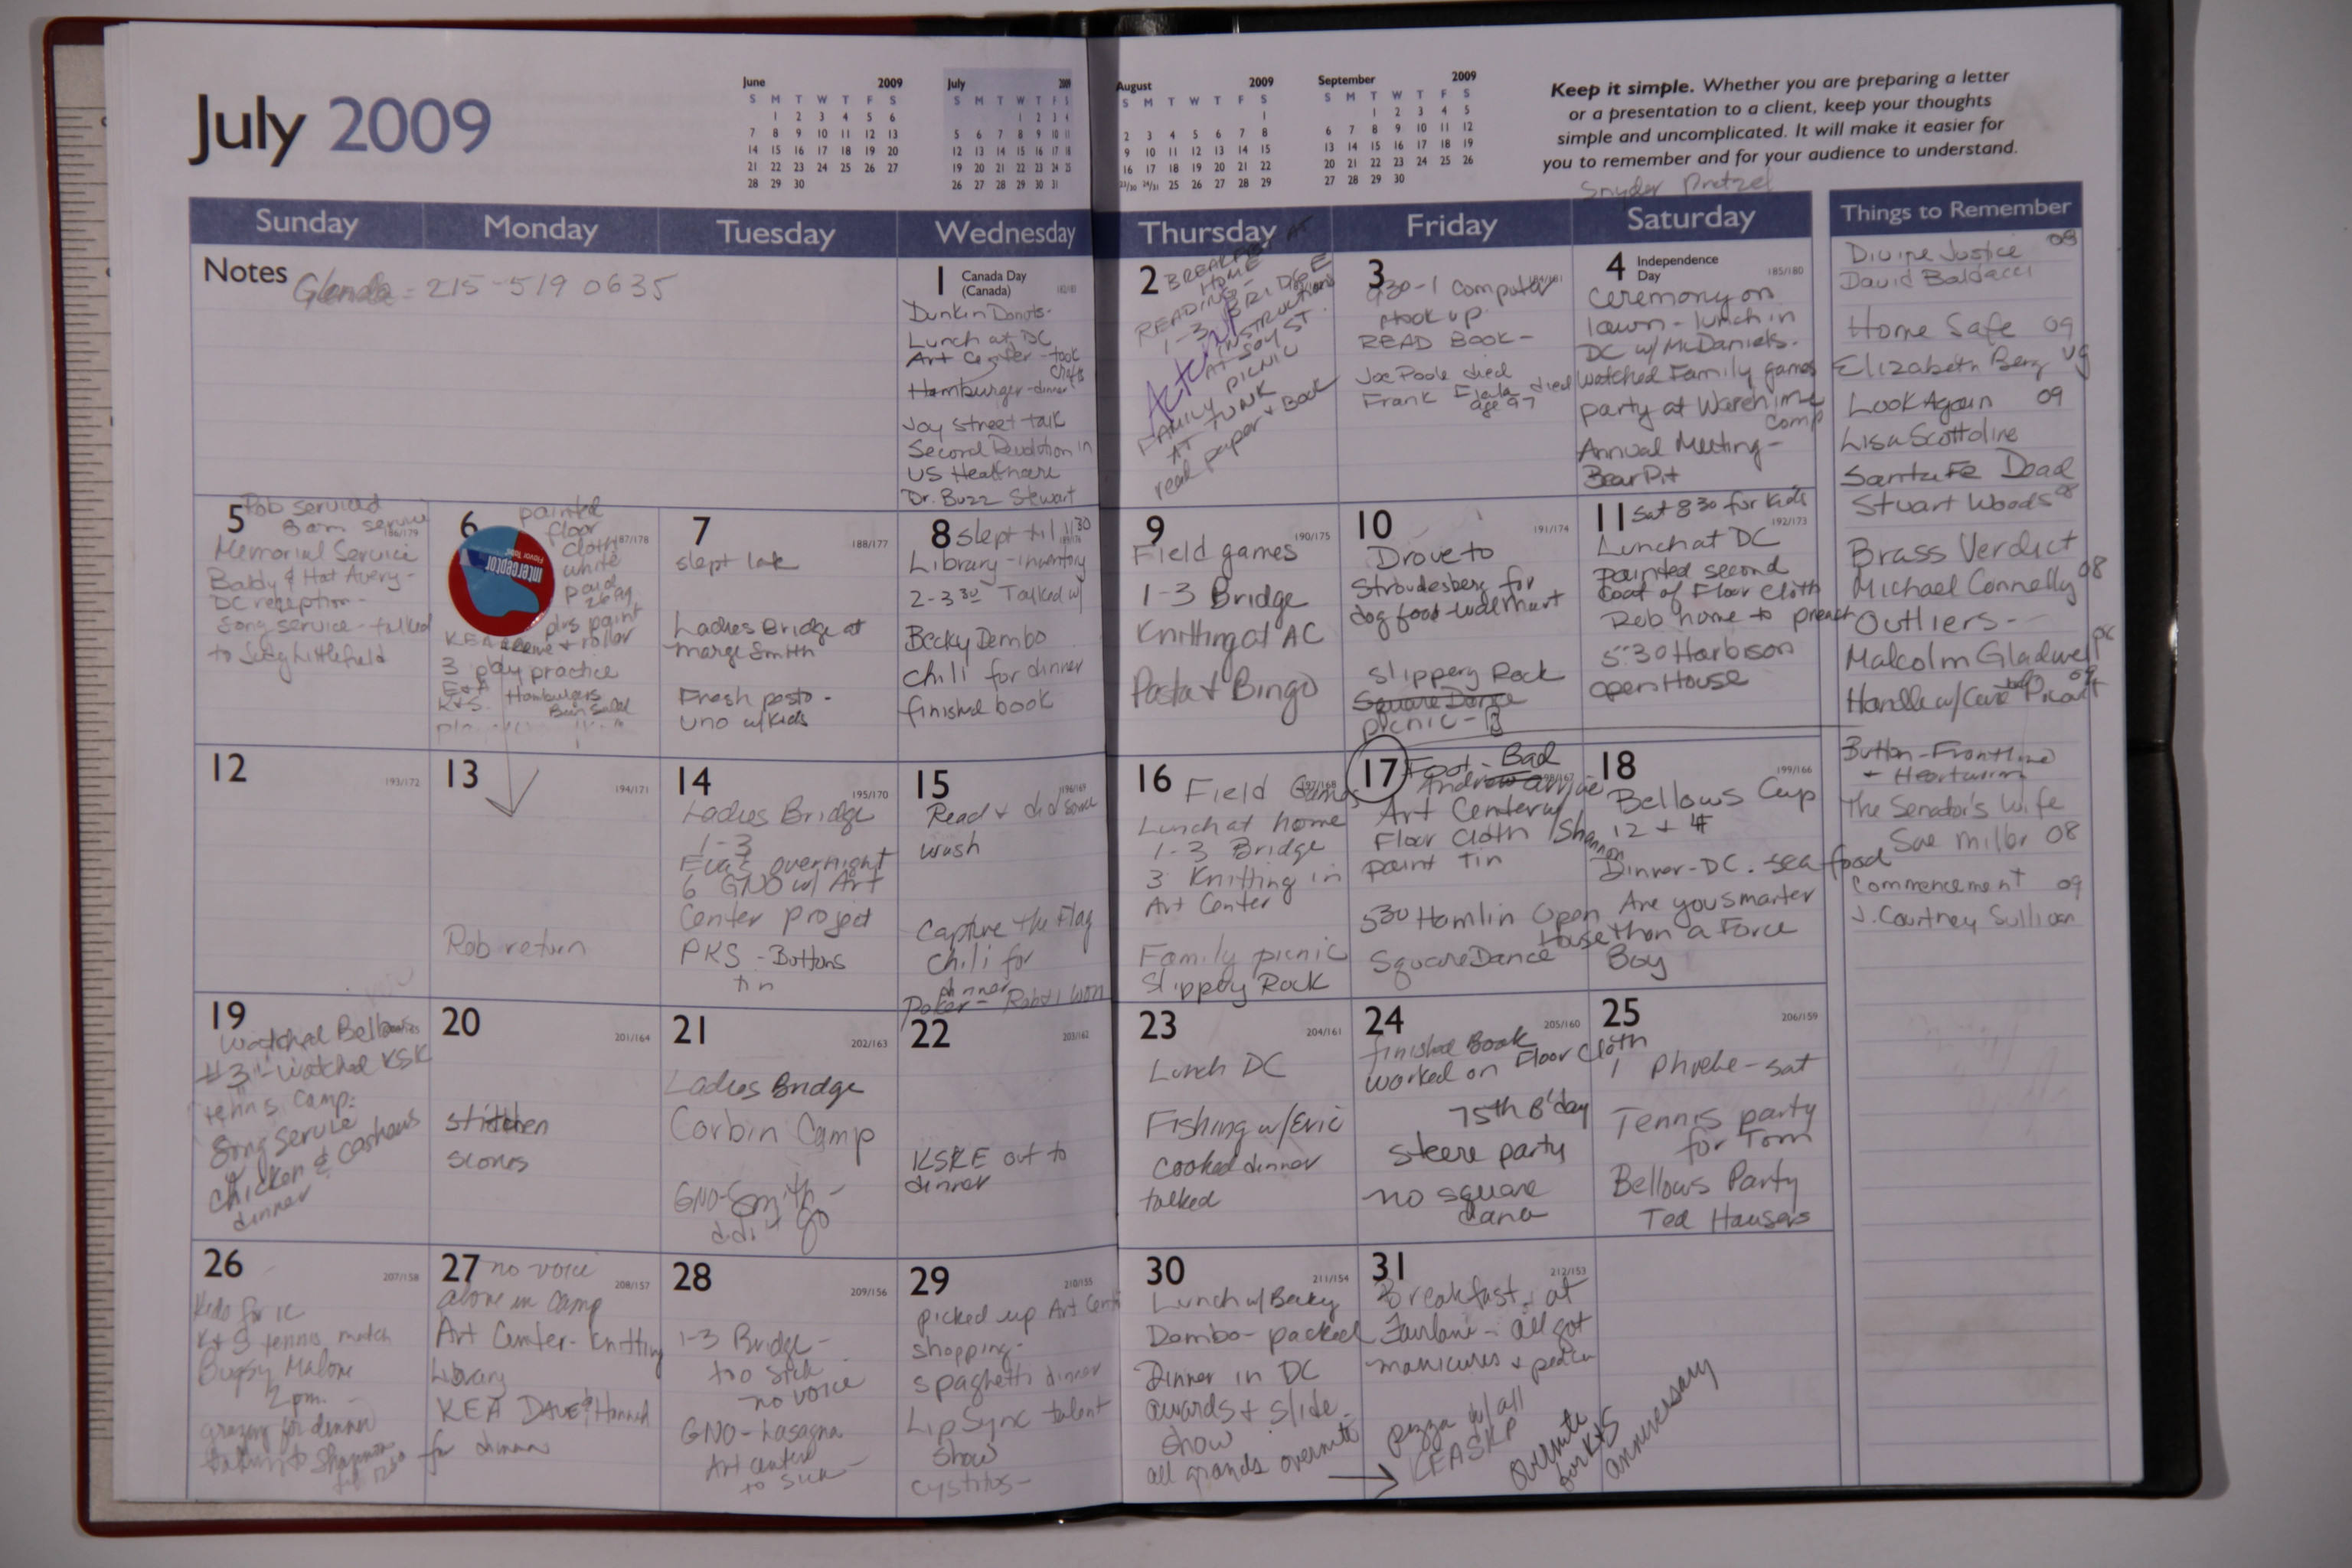 July 2009
June 2009
S M T W T F S
1 2 3 4 5 6
7 8 9 10 11 12 13
14 15 16 17 18 19 20
21 22 23 24 25 26 27
28 29 30
July 2009
S M T W T F S
1 2 3 4
5 6 7 8 9 10 11
12 13 14 15 16 17 18
19 20 21 22 23 24 25
26 27 28 29 30 31
August 2009
S M T W T F S
1
2 3 4 5 6 7 8
9 10 11 12 13 14 15
16 17 18 19 20 21 22
23/30 24/31 25 26 27 28 29
September 2009
S M T W T F S
1 2 3 4 5
6 7 8 9 10 11 12
13 14 15 16 17 18 19
20 21 22 23 24 25 26
27 28 29 30
Keep it simple. Whether you are preparing a letter
or a presentation to a client, keep your thoughts
simple and uncomplicated. It will make it easier for
you to remember and for your audience to understand.
Snyder Pretzel
Sunday Monday Tuesday Wednesday Thursday Friday Saturday Things to Remember
Notes
Glenda = 215-519 0635
1 Canada Day
(Canada)
Dunkin Donuts-
Lunch at DC
Art Center - took
crafts
Hamburger-dinner
Joy Street talk
Second Revolution in
US Healthcare
Dr. Buzz Stewart
2 BREAKFAST AT
HOME
READING-
1-3 BRIDGE
INSTRUCTIONS
AT SOY ST.
FAMILY PICNIC
AT TUNK
read paper + Book
3 184/181
930-1 Computer
Hook up
READ BOOK-
Joe Poole died
Frank died
age 97
4 Independence
Day
185/180
Ceremony on
lawn - lunch in
DC w/ McDaniels.
watched Family games
party at
Camp
Annual Meeting-
Bear Pit
5 186/179
Rob serviced
8 am service
Memorial Service
Baldy & Hat Avery-
DC reception-
Song service - talked
to Littlefield
6 187/178
painted
floor
cloth
white
paid
26.99
plus paint
+ roller
interceptor
KEA
3 play practice
E+A Hamburgers
K+S. Bean Salad
7 188/177
slept late
Ladies Bridge at
Marge Smith
Fresh pasto -
Uno w/kids
8 slept til 11 30
Library - inventory
2-3 30 Talked w/
Becky Dembo
chili for dinner
finished book
9 190/175
Field games
1-3 Bridge
Knitting at AC
Pasta & Bingo
10 191/174
Drove to
Stroudesberg for
dog food-Walmart
Slippery Rock
Square Dance
picnic -
11 Sat 8 30 for kids
192/173
Lunch at DC
painted second
coat of Floor Cloth
Rob home to preach
5:30 Harbison
Open House
12 193/172
13 194/171
Rob return
14 195/170
Ladies Bridge
1-3
Eva's overnight
6 GNO w/ Art
Center project
PKS - Buttons
tin
15 196/169
Read + did some
wash
Capture the Flag
Chili for
dinner
Poker - Rob + I won
16 197/168
Field Games
Lunch at home
1-3 Bridge
3 Knitting in
Art Center
Family picnic
Slippery Rock
17 198/167
Foot - Bad
Andrew arrive
Art Center w/
Floor Cloth / Shannon
paint Tin
530 Hamlin Open
House
Square Dance
18 199/166
Bellows Cup
12 + 4
Dinner-DC. sea food
Are you smarter
than a Force
Boy
19
watched Bellows
#3 - watched KSK
tennis camp.
Song Service
Chicken & Cashews
dinner
20 201/164
stitchen
scones
21 202/163
Ladies Bridge
Corbin Camp
GNO-Smith-
didn't go
22 203/162
KSRE out to
dinner
23 204/161
Lunch DC
Fishing w/Eric
Cooked dinner
talked
24 205/160
finished Book
worked on Floor Cloth
75th B'day
Steere party
no square
dance
25 206/159
1 Phoebe-sat
Tennis party
for Tom
Bellows Party
Ted Hausers
26 207/158
K+S tennis match
Bugsy Malone
2 pm.
grazing for dinner
talking to Shannon
27 208/157
no voice
alone in camp
Art Center- Knitting
Library
KEA DAVE & Hannah
for dinner
28 209/156
1-3 Bridge-
too sick
no voice
GNO-Lasagna
Art center
to sick-
29 210/155
picked up Art Center
shopping-
spaghetti dinner
Lip Sync talent
Show
cystitus-
30 211/154
Lunch w/Becky
Dombo-packed
Dinner in DC
awards + slide
show
all grands overnite
31 212/153
Breakfast at
Fairlane - all got
manicures +
pizza w/all
KEASKP
Overnite
for K+S
anniversary
Divine Justice 09
David Baldacci
Home Safe 09
Elizabeth Berg vg
Look Again 09
Lisa Scottoline
Santa Fe Dead
Stuart Woods 08
Brass Verdict
Michael Connelly 08
Outliers-
Malcolm Gladwell
Handle w/Care Picoult 09
Button-Frontline
+ Heartwarming
The Senator's Wife
Sue Miller 08
Commencement 09
J. Courtney Sullivan